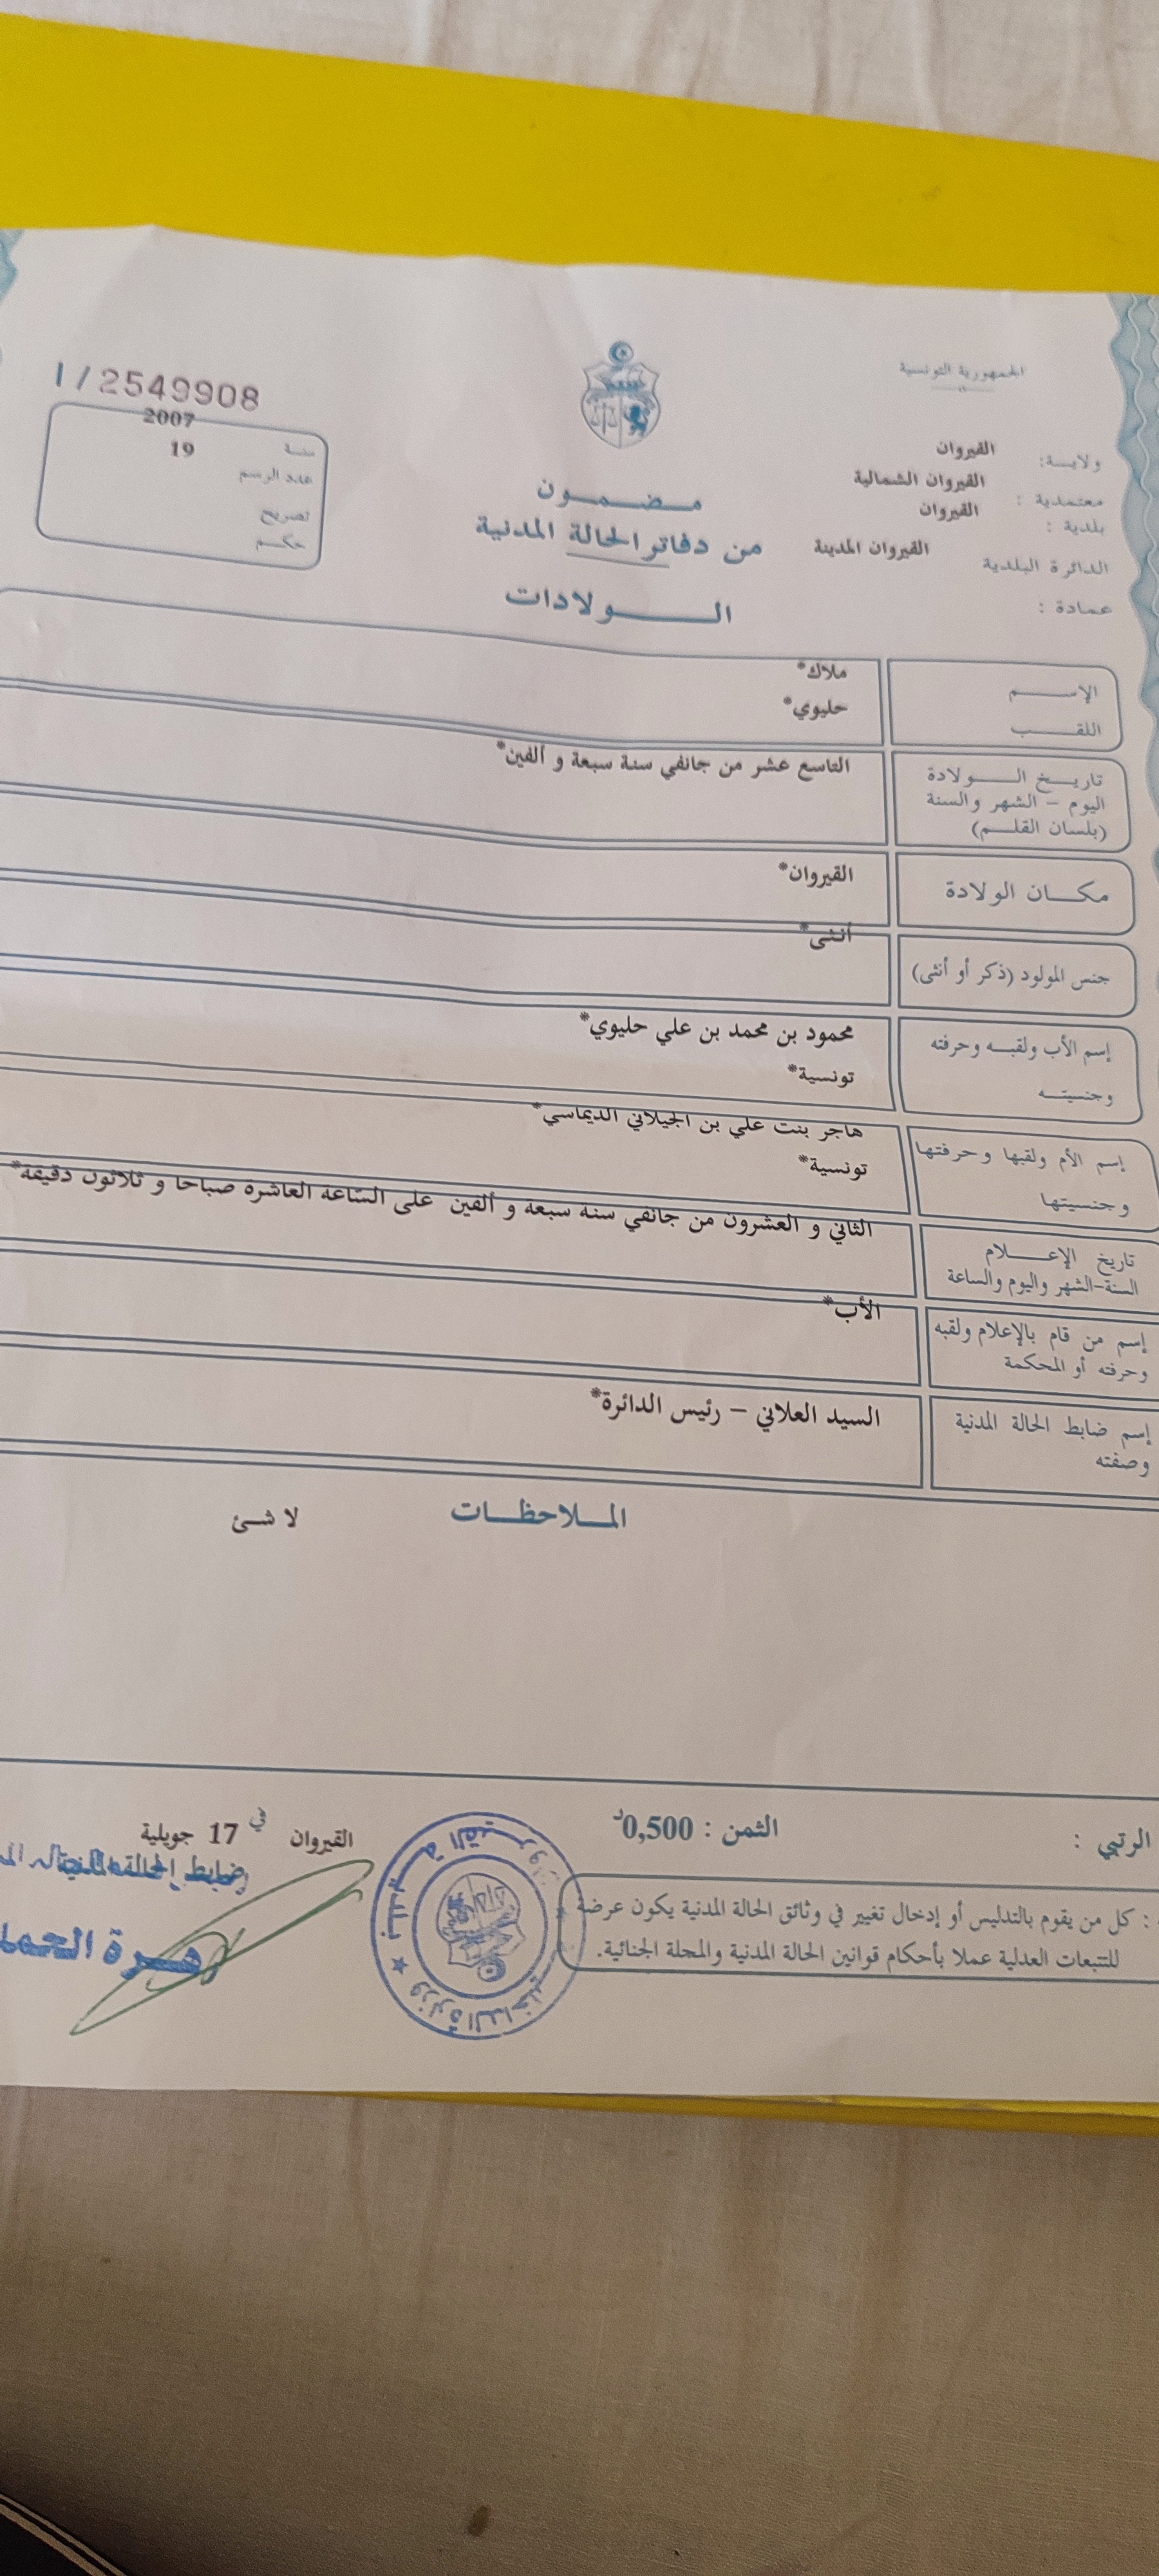 الجمهورية التونسية
1/2549908
ولايـــة: القيروان
معتمدية : القيروان الشمالية
بلدية : القيروان
الدائرة البلدية القيروان المدينة
عمادة :
سنــة 2007
عدد الرسم 19
تصريح
حكــم
مـضـمـــون
من دفاتر الحالة المدنية
الـــــولادات
الإســـــم ملاك*
اللقـــــب حليوي*
تاريـــخ الـــــولادة التاسع عشر من جانفي سنة سبعة و ألفين*
اليوم – الشهر والسنة
(بلسان القلـــم)
مكـــان الولادة القيروان*
جنس المولود (ذكر أو أنثى) أنثى*
إسم الأب ولقبـــه وحرفته محمود بن محمد بن علي حليوي*
وجنسيتـــه تونسية*
إسم الأم ولقبها وحرفتها هاجر بنت علي بن الجيلاني الديماسي*
وجنسيتها تونسية*
تاريخ الإعـــــلام الثاني و العشرون من جانفي سنة سبعة و ألفين على الساعة العاشرة صباحا و ثلاثون دقيقة*
السنة-الشهر واليوم والساعة
إسم من قام بالإعلام ولقبه الأب*
وحرفته أو المحكمة
إسم ضابط الحالة المدنية السيد العلاني – رئيس الدائرة*
وصفته
المـــلاحظـــات لا شـئ
الرتبي :
الثمن : 0,500د
القيروان في 17 جويلية
ضابط الحالة المدنية
: كل من يقوم بالتدليس أو إدخال تغيير في وثائق الحالة المدنية يكون عرضة
للتتبعات العدلية عملا بأحكام قوانين الحالة المدنية والمجلة الجنائية.
وزارة الداخلية
بلدية القيروان